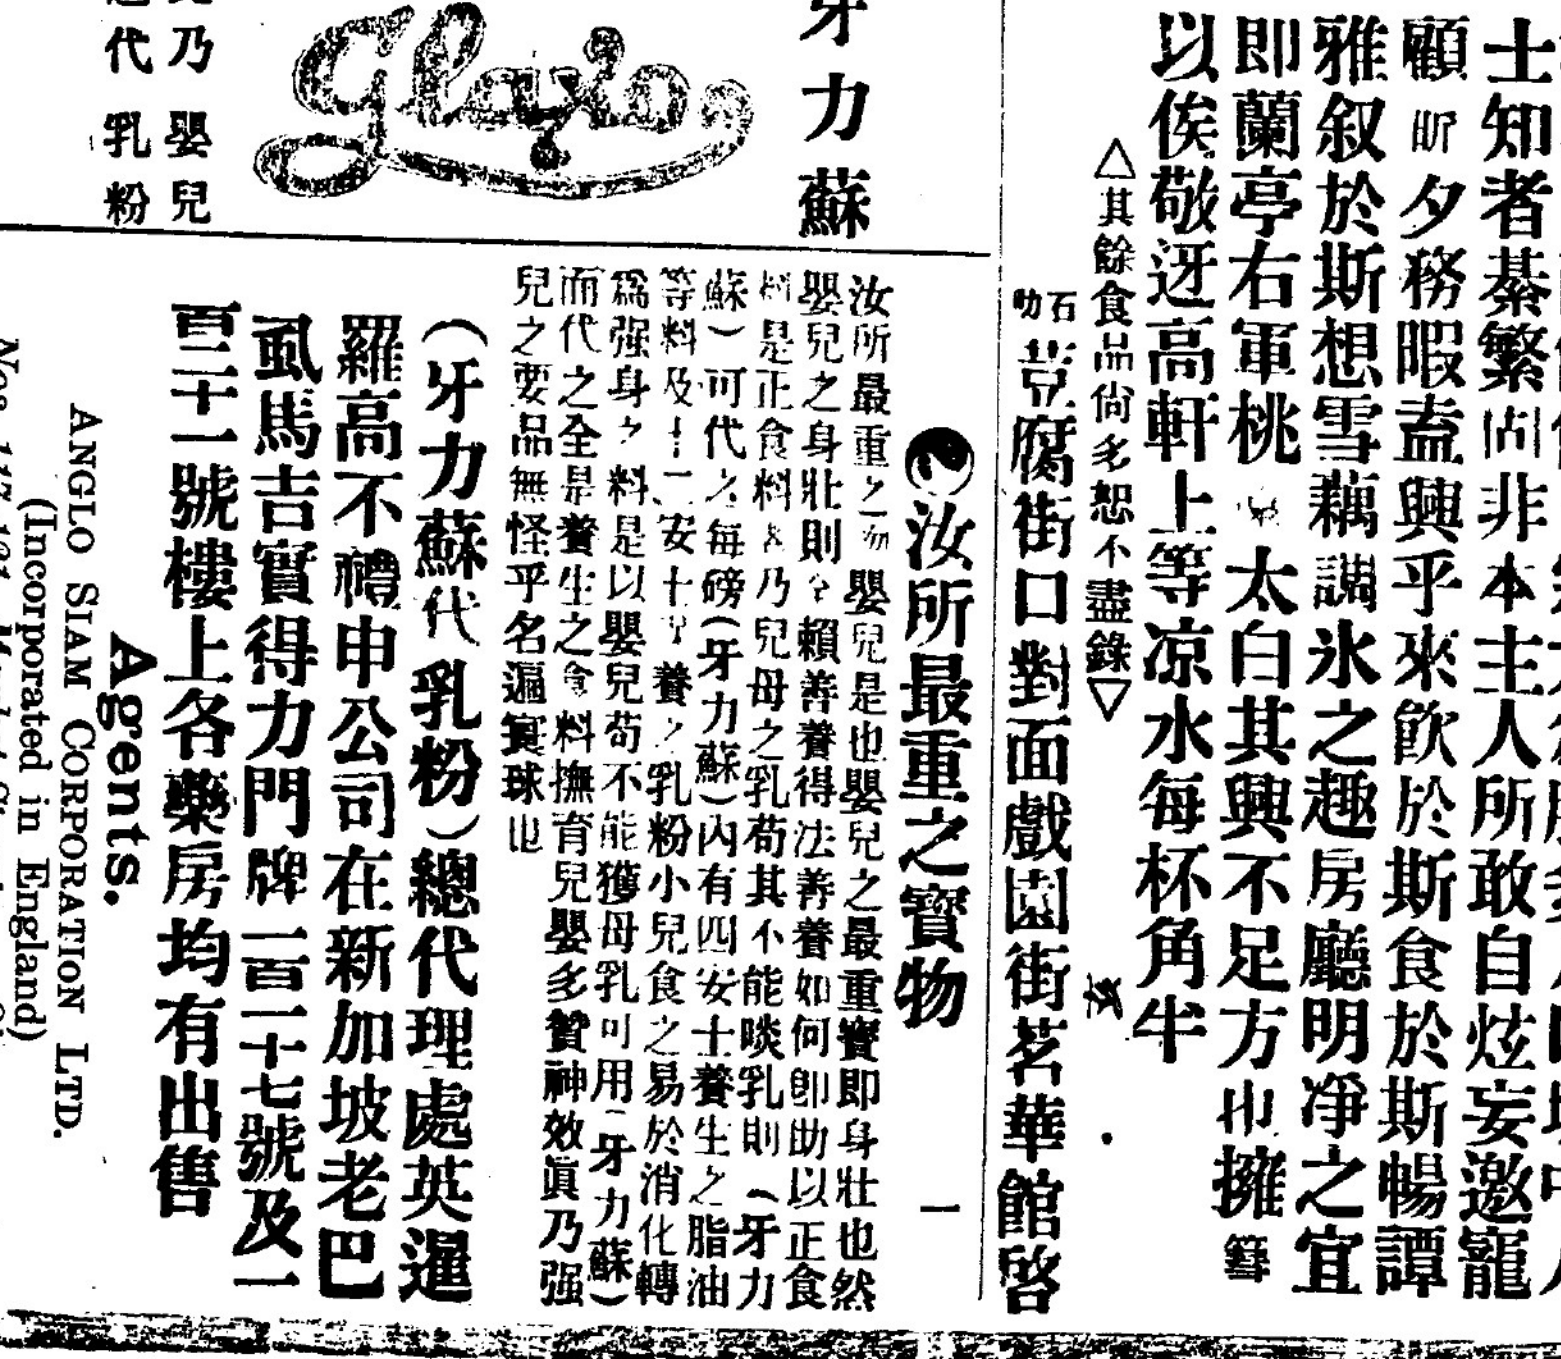 士知者綦繁 非本主人所敢自炫妄邀寵
顧 夕務暇盍興乎來飲於斯食於斯暢譚
雅叙於斯想雪藕調氷之趣房廳明凈之宜
即蘭亭右軍桃 太白其興不足方也擁篲
以俟敬迓高軒上等凉水每杯角半
△其餘食品尙多恕不盡錄▽
石叻
荳腐街口對面戲園街茗華館啓
牙力蘇
Glaxo
乃嬰兒
代乳粉
汝所最重之寶物 一
汝所最重之物嬰兒是也嬰兒之最重寶即身壯也然
嬰兒之身壯則 賴善養得法善養如何卽助以正食
料是正食料 乃兒母之乳苟其不能啖乳則(牙力
蘇)可代之每磅(牙力蘇)內有四安士養生之脂油
等料及十二安士 養 乳粉小兒食之易於消化轉
爲强身之料是以嬰兒苟不能獲母乳可用(牙力蘇)
而代之全是養生之食料撫育兒嬰多贊神效眞乃强
兒之要品無怪乎名遍寰球也
(牙力蘇代乳粉)總代理處英暹
羅高不禮申公司在新加坡老巴
虱馬吉實得力門牌一百一十七號及一
百二十一號樓上各藥房均有出售
Agents.
ANGLO SIAM CORPORATION LTD.
(Incorporated in England)